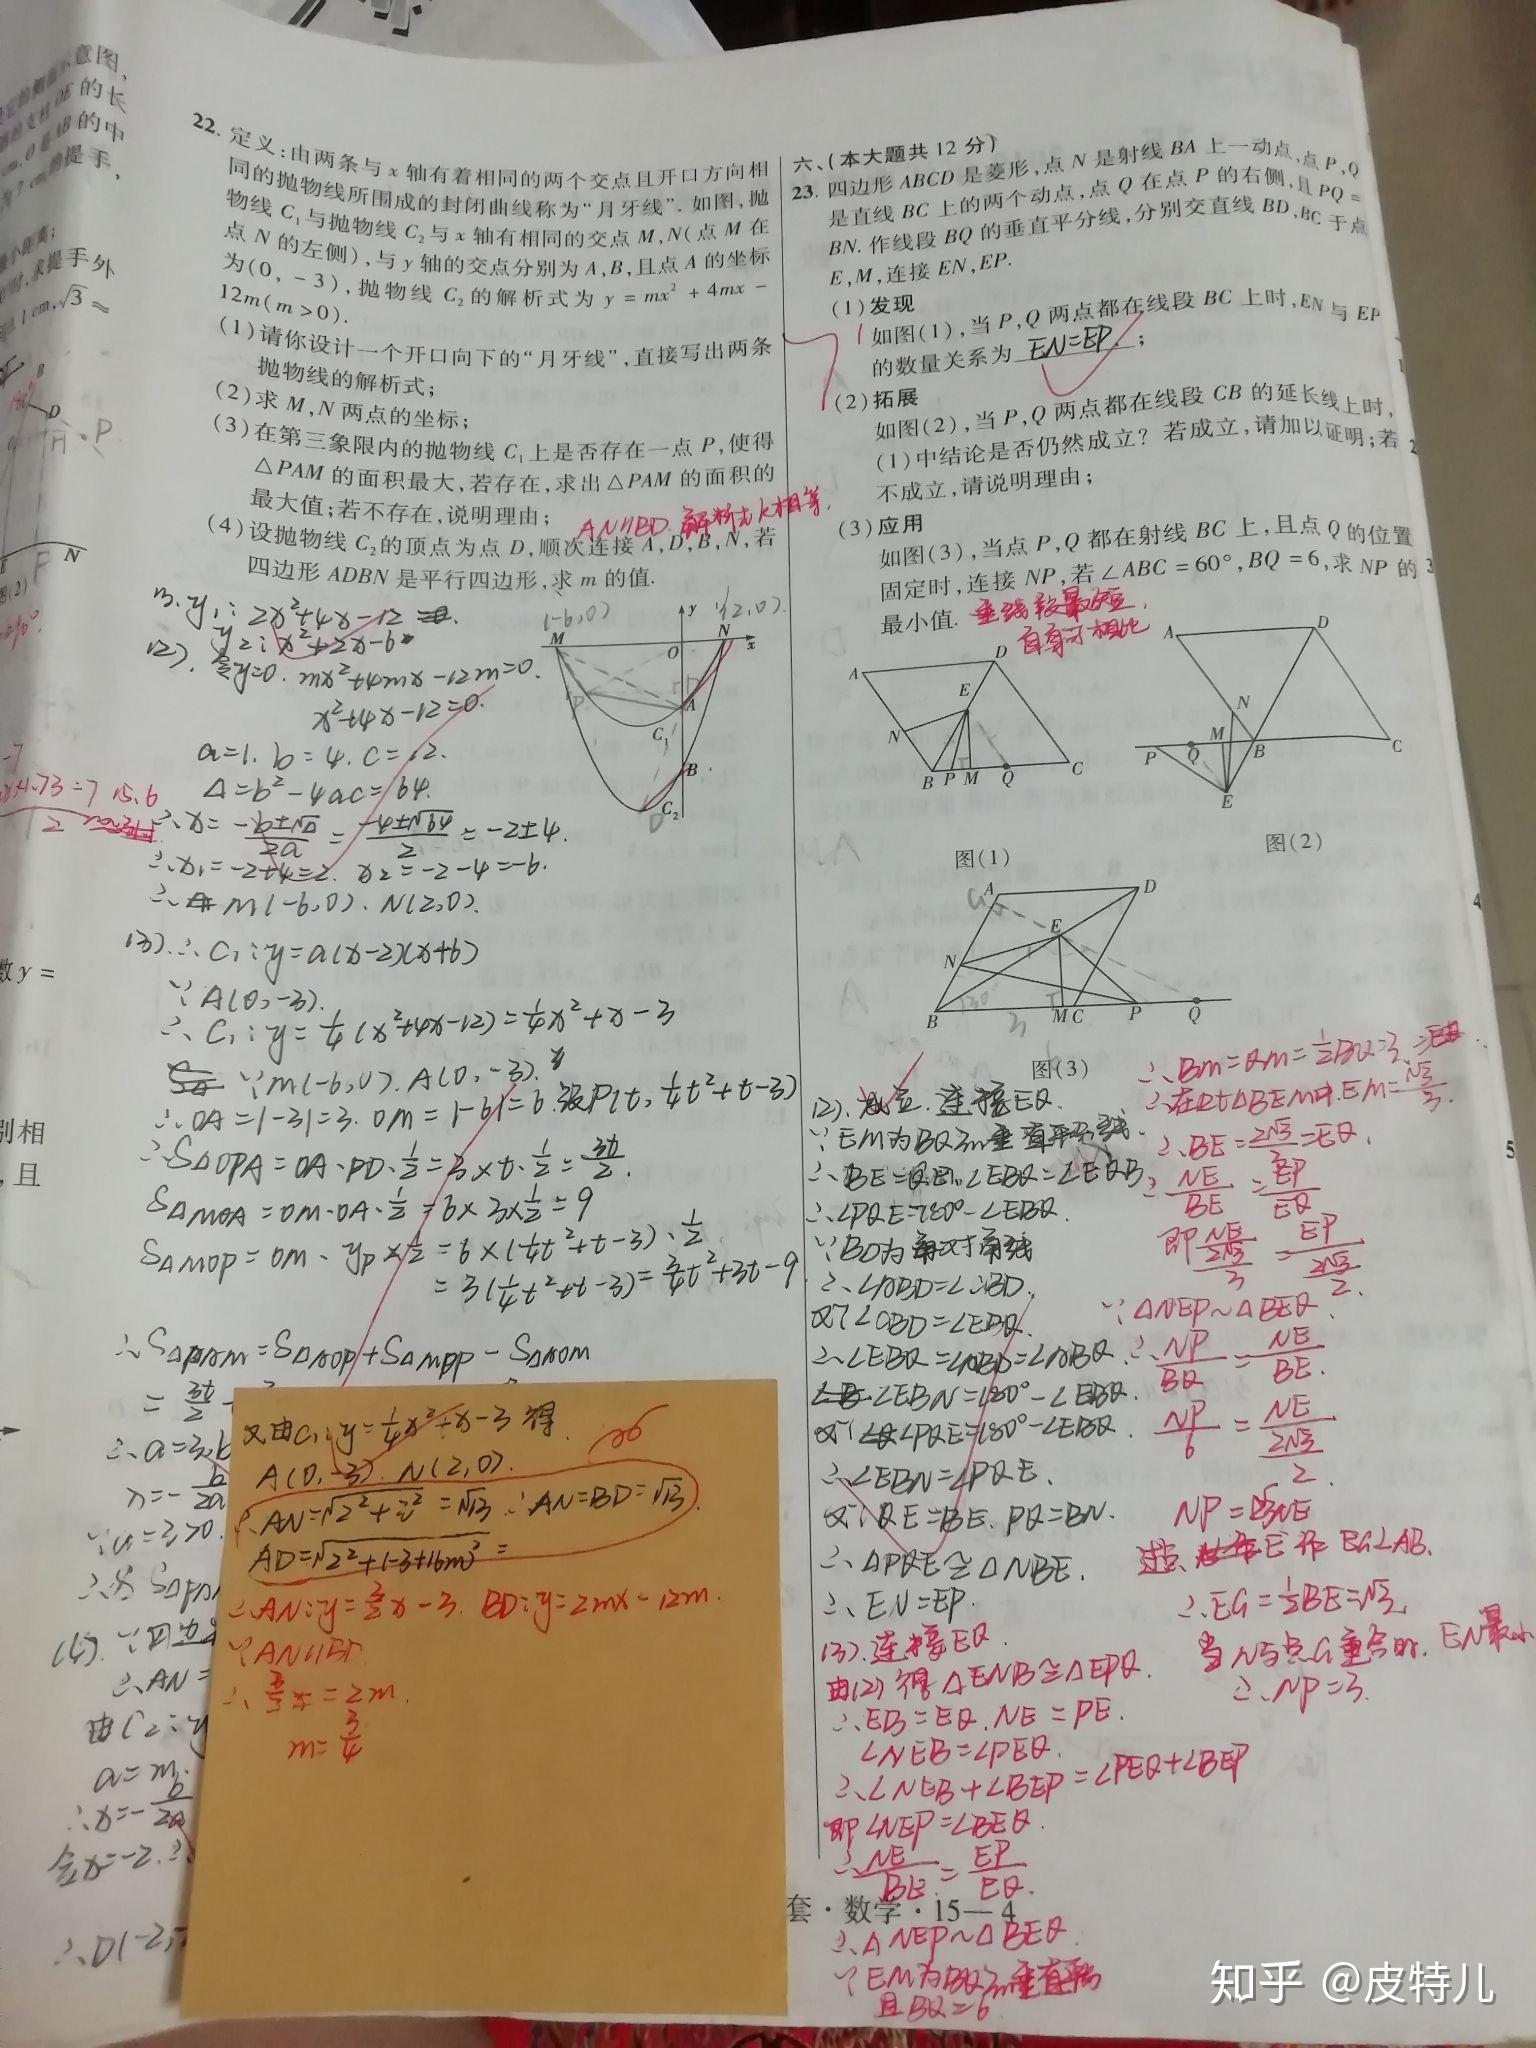 22. 定义:由两条与 x 轴有着相同的两个交点且开口方向相
同的抛物线所围成的封闭曲线称为“月牙线”. 如图,抛
物线 C₁与抛物线 C₂与 x 轴有相同的交点 M,N(点 M 在
点 N 的左侧),与 y 轴的交点分别为 A,B,且点 A 的坐标
为(0,-3),抛物线 C₂的解析式为 y=mx²+4mx-
12m(m>0).
(1)请你设计一个开口向下的“月牙线”,直接写出两条
抛物线的解析式;
(2)求 M,N 两点的坐标;
(3)在第三象限内的抛物线 C₁上是否存在一点 P,使得
△PAM 的面积最大,若存在,求出△PAM 的面积的
最大值;若不存在,说明理由;
AN∥BD. 解析式k相等.
(4)设抛物线 C₂的顶点为点 D,顺次连接 A,D,B,N,若
四边形 ADBN 是平行四边形,求 m 的值.
y₁: 2x²+4x-12
y₂: x²+2x-6
(-6,0) (2,0)
M O N x y A C₁ B C₂ D P
(2). 令y=0. mx²+4mx-12m=0.
x²+4x-12=0.
a=1. b=4. c=-12.
Δ=b²-4ac=64.
∴x=(-b±√Δ)/2a=(-4±√64)/2=-2±4.
∴x₁=-2+4=2. x₂=-2-4=-6.
∴M(-6,0). N(2,0).
(3).∴C₁:y=a(x-2)(x+6)
∵A(0,-3).
∴C₁:y=¼(x²+4x-12)=¼x²+x-3
∵M(-6,0). A(0,-3).
∴OA=|-3|=3. OM=|-6|=6. 设P(t,¼t²+t-3)
∴S△OPA=OA·PD·½=3×t·½=3t/2.
S△MOA=OM·OA·½=6×3×½=9
S△MOP=OM·yP×½=6×(¼t²+t-3)·½
=3(¼t²+t-3)=¾t²+3t-9
∴S△PAM=S△AOP+S△MOP-S△AOM
又由C₁:y=¼x²+x-3得
A(0,-3). N(2,0).
∴AN=√(2²+3²)=√13 ∴AN=BD=√13.
AD=√(2²+(-3+16m)²=
∴AN:y=3/2x-3. BD:y=2mx-12m.
∵AN∥BD
∴3/2=2m.
m=3/4
六、(本大题共 12 分)
23. 四边形 ABCD 是菱形,点 N 是射线 BA 上一动点,点 P,Q
是直线 BC 上的两个动点,点 Q 在点 P 的右侧,且 PQ=
BN. 作线段 BQ 的垂直平分线,分别交直线 BD,BC 于点
E,M,连接 EN,EP.
(1)发现
如图(1),当 P,Q 两点都在线段 BC 上时,EN 与 EP
的数量关系为 EN=EP ;
(2)拓展
如图(2),当 P,Q 两点都在线段 CB 的延长线上时,
(1)中结论是否仍然成立?若成立,请加以证明;若
不成立,请说明理由;
(3)应用
如图(3),当点 P,Q 都在射线 BC 上,且点 Q 的位置
固定时,连接 NP,若∠ABC=60°,BQ=6,求 NP 的
最小值.
垂线段最短.
A D E N B P M Q C
图(1)
A D N M P Q B C E
图(2)
G A D E N B M C P Q 30° 3
图(3)
(2). 成立. 连接EQ.
∵EM为BQ的垂直平分线.
∴BE=QE.∠EBQ=∠EQB
∴∠PQE=180°-∠EBQ.
∵BD为角对角线
∴∠ABD=∠CBD.
又∵∠CBD=∠EBQ.
∠EBN=180°-∠EBQ.
又∵∠PQE=180°-∠EBQ.
∴∠EBN=∠PQE.
又∵QE=BE. PQ=BN.
∴△PQE≌△NBE.
∴EN=EP.
(3). 连接EQ.
由(2)得△ENB≌△EPQ.
∴EB=EQ. NE=PE.
∠NEB=∠PEQ.
∴∠NEB+∠BEP=∠PEQ+∠BEP
即∠NEP=∠BEQ.
∴NE/BE=EP/EQ.
∴△NEP~△BEQ.
∵EM为BQ的垂直平分
且BQ=6.
∴BM=QM=½BQ=3
∴在Rt△BEM中.EM=√3
∴BE=2√3=EQ.
∴NE/BE=EP/EQ
即NE/2√3=EP/2√3.
∵△NEP~△BEQ.
∴NP/BQ=NE/BE.
NP/6=NE/2√3.
NP=√3NE
过点E作EG⊥AB.
∴EG=½BE=√3
当N与点G重合时. EN最小
∴NP=3.
套·数学·15—4
知乎 @皮特儿